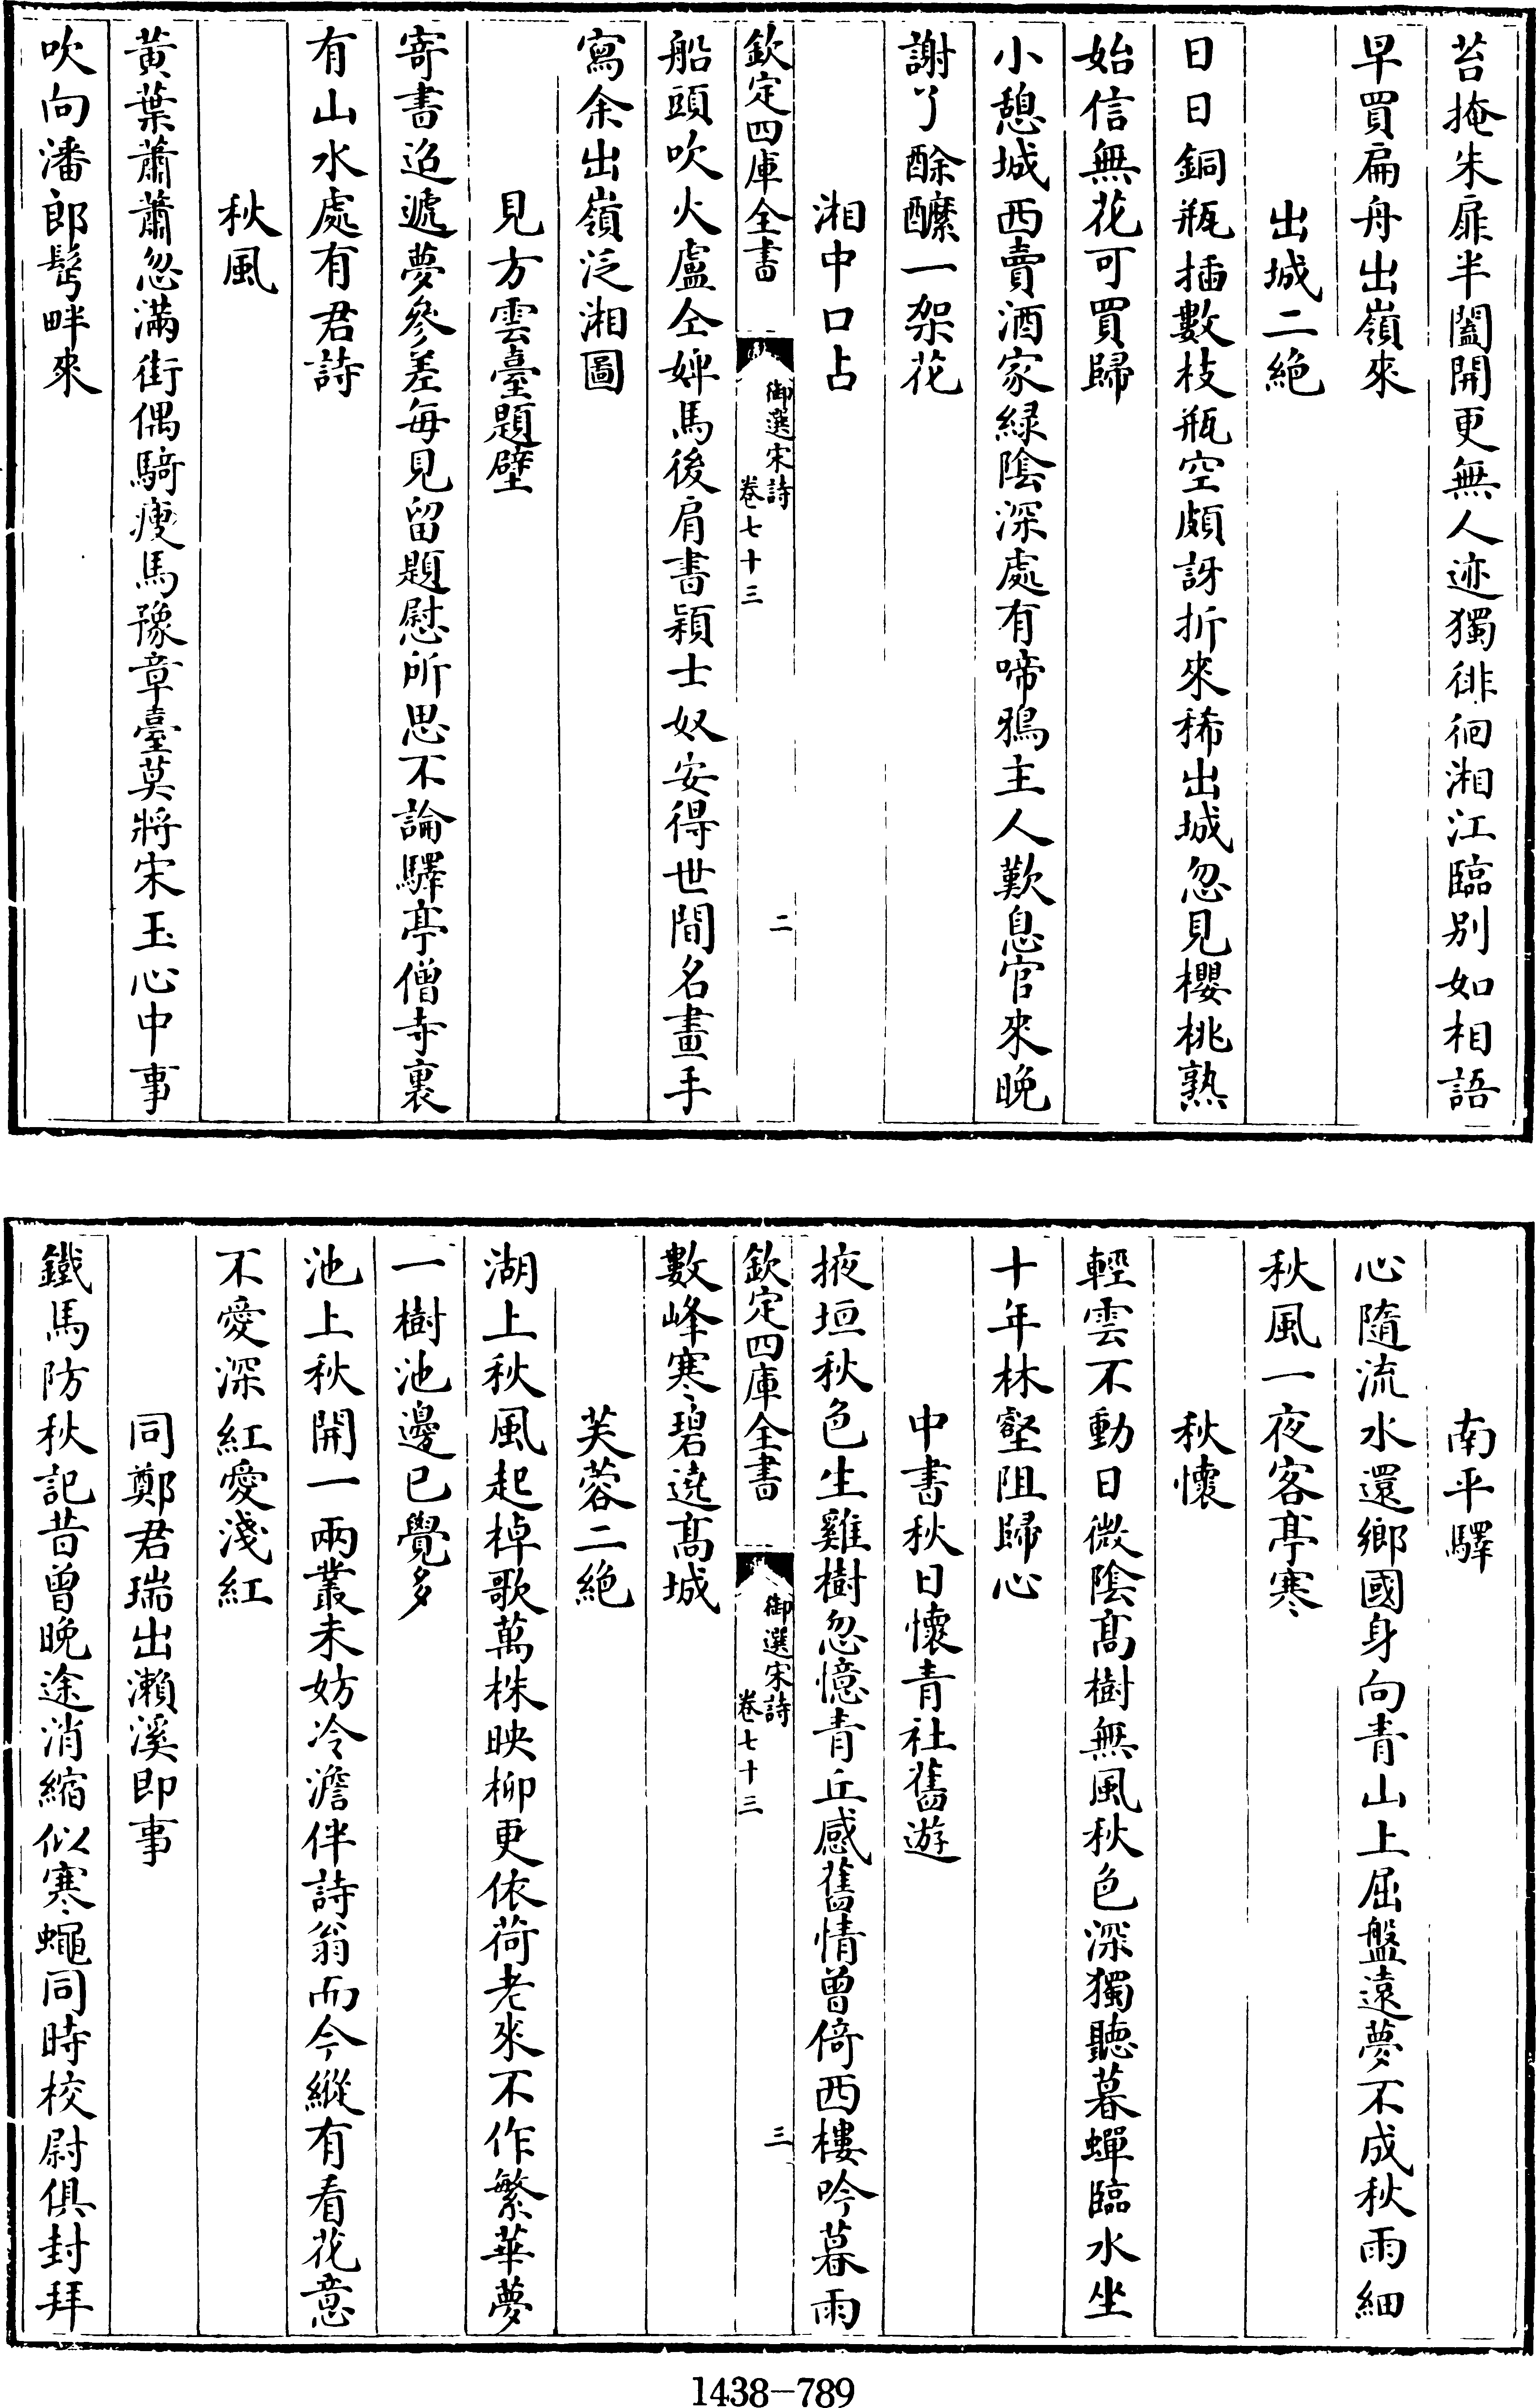 苔掩朱扉半闔開更無人迹獨徘徊湘江臨别如相語
早買扁舟出嶺來
出城二絶
日日銅瓶插數枝瓶空頗訝折來稀出城忽見櫻桃熟
始信無花可買歸
小憩城西賣酒家緑陰深處有啼鴉主人歎息官來晚
謝了酴醾一架花
湘中口占
欽定四庫全書
御選宋詩
卷七十三
二
船頭吹火盧仝婢馬後肩書穎士奴安得世間名畫手
寫余出嶺泛湘圖
見方雲臺題壁
寄書迢遞夢參差每見留題慰所思不論驛亭僧寺裏
有山水處有君詩
秋風
黄葉蕭蕭忽滿街偶騎瘦馬豫章臺莫將宋玉心中事
吹向潘郎鬂畔來
南平驛
心隨流水還鄉國身向青山上屈盤遠夢不成秋雨細
秋風一夜客亭寒
秋懷
輕雲不動日微陰髙樹無風秋色深獨聽暮蟬臨水坐
十年林壑阻歸心
中書秋日懷青社舊遊
掖垣秋色生雞樹忽憶青丘感舊情曾倚西樓吟暮雨
欽定四庫全書
御選宋詩
卷七十三
三
數峰寒碧遶髙城
芙蓉二絶
湖上秋風起棹歌萬株映柳更依荷老來不作繁華夢
一樹池邊已覺多
池上秋開一兩叢未妨冷澹伴詩翁而今縱有看花意
不愛深紅愛淺紅
同鄭君瑞出瀬溪即事
鐵馬防秋記昔曾晚途消縮似寒蠅同時校尉俱封拜
1438-789